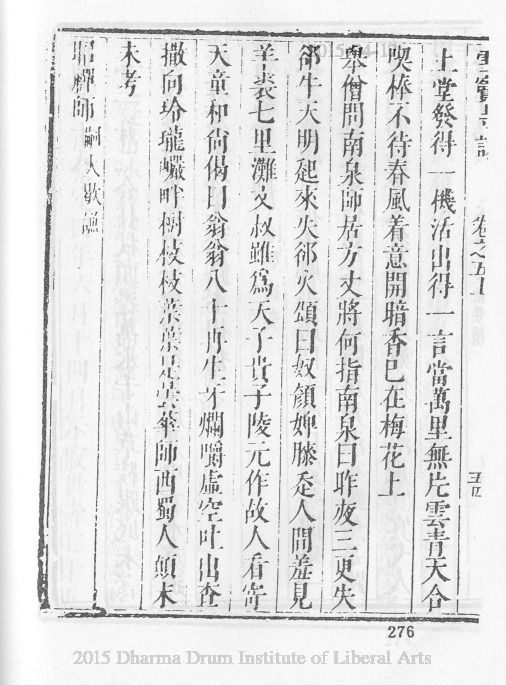 雲竇寺誌 卷之五上 五四
上堂發得一機活出得一言當萬里無片雲青天合
喫棒不待春風着意開暗香已在梅花上
舉僧問南泉師居方丈將何指南泉曰昨夜三更失
郤牛天明起來失郤火頌曰奴顏婢膝走人間羞見
羊裘七里灘文叔雖爲天子貴子陵元作故人看寄
天童和尚偈曰翁翁八十再生牙爛嚼虛空吐出查
撒向玲瓏巖畔樹枝枝葉葉是曇華師西蜀人顛末
未考
禪師嗣大歇謙
276
2015 Dharma Drum Institute of Liberal Arts